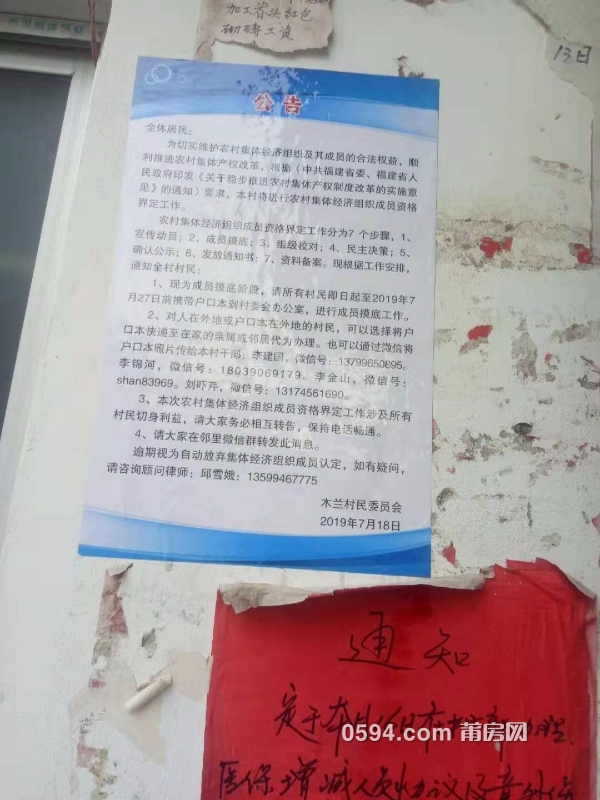 加工岩头红包
砌砖工资
13日
公告
全体居民：
为切实维护农村集体经济组织及其成员的合法权益，顺
利推进农村集体产权改革，根据（中共福建省委、福建省人
民政府印发《关于稳步推进农村集体产权制度改革的实施意
见》的通知）要求，本村将进行农村集体经济组织成员资格
界定工作。
农村集体经济组织成员资格界定工作分为7 个步骤，1、
宣传动员；2、成员摸底；3、组级校对；4、民主决策；5、
确认公示；6、发放通知书；7、资料备案。现根据工作安排，
通知全村村民：
1、现为成员摸底阶段，请所有村民即日起至2019年7
月27日前携带户口本到村委会办公室，进行成员摸底工作。
2、对人在外地或户口本在外地的村民，可以选择将户
口本快递至在家的亲属或邻居代为办理。也可以通过微信将
户口本照片传给本村干部：李建国，微信号：13799650895。
李锦河，微信号：18039069179。李金山，微信号：
shan83969。刘吓芹，微信号：13174561690。
3、本次农村集体经济组织成员资格界定工作涉及所有
村民切身利益，请大家务必相互转告，保持电话畅通。
4、请大家在邻里微信群转发此消息。
逾期视为自动放弃集体经济组织成员认定，如有疑问，
请咨询顾问律师：邱雪娥：13599467775
木兰村民委员会
2019年7月18日
通知
定于本月
医保增减人员
0594.com 莆房网